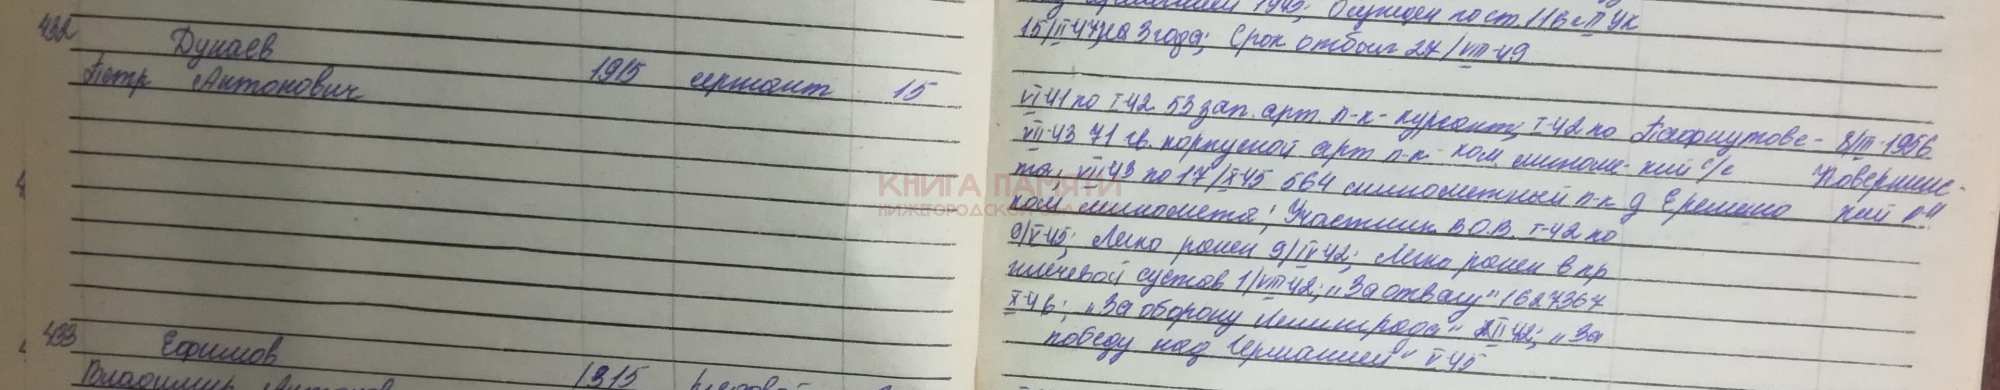 432
Дунаев
Петр Антонович 1915 сержант 15
433
Ефимов
Владимир 1915
КНИГА ПАМЯТИ
НИЖЕГОРОДСКОЙ ОБЛАСТИ
1945; Осужден по ст. 116 ч II УК
15/II-47 на 3 года; Срок отбыл 27/VIII-49
VI-41 по I-42 53 зап. арт. п-к - курсант; I-42 по 8/III-1956
VII-43 71 гв. корпусной арт п-к ком миноме- кий с/с
та, VII-43 по 17/X-45 564 минометный п-к д Еремино кий р-н
ком миномета; Участник В.О.В. I-42 по
9/V-45; Легко ранен 9/IV-42; Легко ранен в пр
плечевой сустав 1/VIII-42; „За отвагу" 1627367
X-46; „За оборону Ленинграда" 42; „За
победу над Германией" V-45